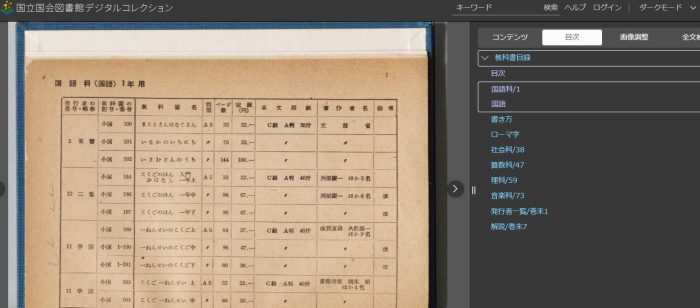 国立国会図書館デジタルコレクション
キーワード 検索 ヘルプ ログイン ダークモード
コンテンツ 目次 画像調整
教科書目録
目次
国語科/1
国語
書き方
ローマ字
社会科/38
算数科/47
理科/59
音楽科/73
発行者一覧/巻末1
解説/巻末7
1
国語科(国語)1年用
教科書名 判型 ページ数 定価(円) 本文用紙 著作者名 備考
2 東書 小国 100 まことさんはなこさん A5 32 22.— C級 A判 36斤 文部省
小国 101 いなかのいちにち 〃 76 53.— 〃 〃
小国 102 いさむさんのうち 〃 144 100.— 〃 〃
12 二葉 小国 194 こくごのほん 入門 A5 32 C級 A判 40斤 西原慶一 ほか5名
小国 196 こくごのほん 一年中 〃 96 67.— 〃 西原慶一 ほか6名
小国 197 こくごのほん 一年下 〃 96 67.— 〃 〃
11 学図 小国 160 一ねんせいのこくご上 A5 64 37.— C級 A判 40斤 志賀直哉
小国 1-100 一ねんせいのこくご中 〃 96 〃 〃
小国 1-101 一ねんせいのこくご下 〃 80 38.— 〃 〃
11 学図 小国 163 C級 A判 40斤
小国 164